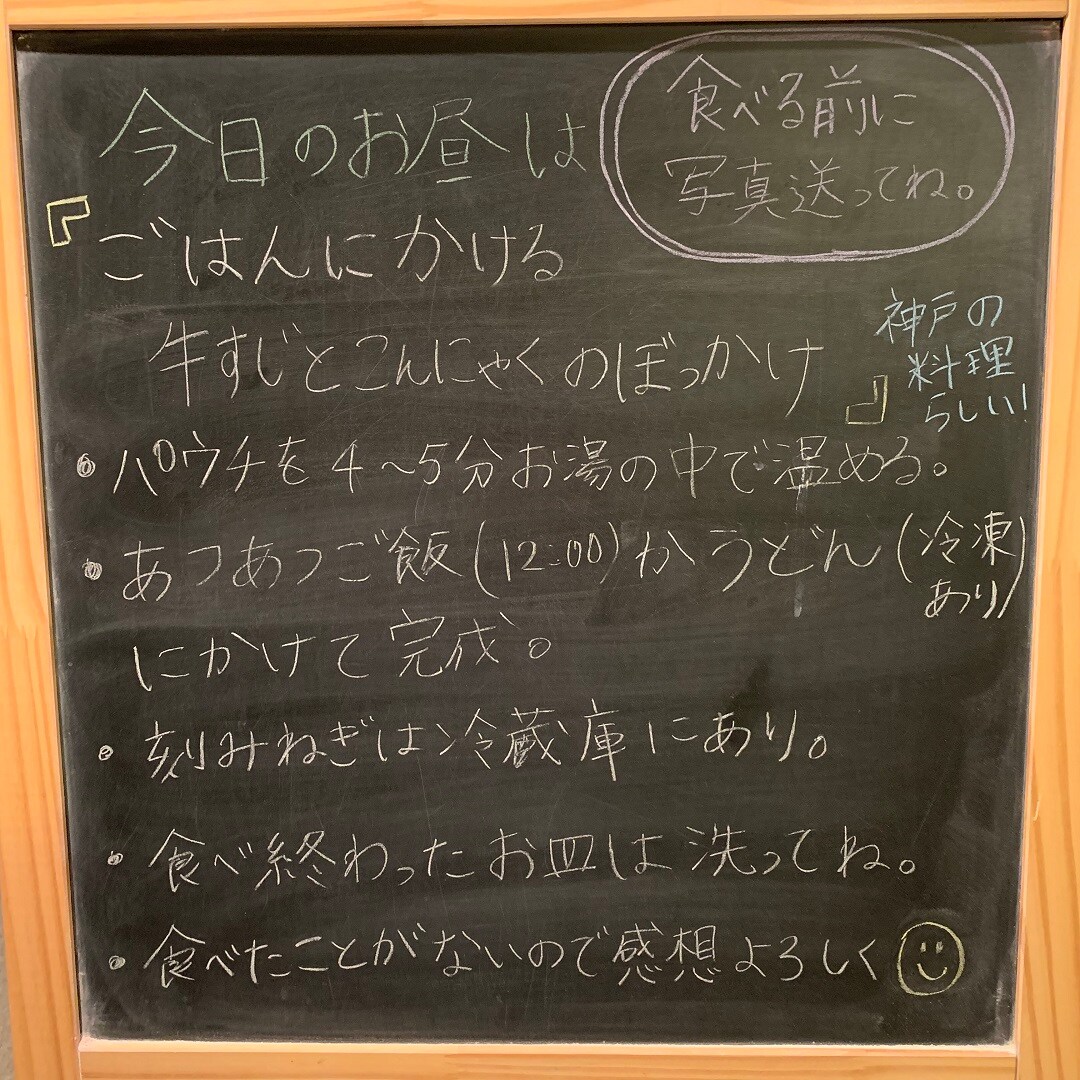 今日のお昼は
食べる前に
写真送ってね。
『ごはんにかける
牛すじとこんにゃくのぼっかけ』
神戸の
料理
らしい!
・パウチを4~5分お湯の中で温める。
・あつあつご飯(12:00)かうどん(冷凍
あり)
にかけて完成。
・刻みねぎは冷蔵庫にあり。
・食べ終わったお皿は洗ってね。
・食べたことがないので感想よろしく